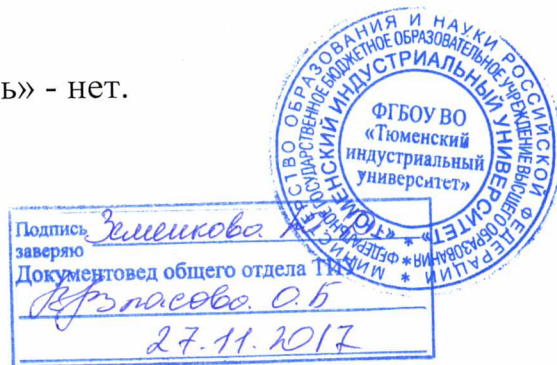 ь» - нет.
МИНИСТЕРСТВО ОБРАЗОВАНИЯ И НАУКИ РОССИЙСКОЙ ФЕДЕРАЦИИ *
ФЕДЕРАЛЬНОЕ ГОСУДАРСТВЕННОЕ БЮДЖЕТНОЕ ОБРАЗОВАТЕЛЬНОЕ УЧРЕЖДЕНИЕ ВЫСШЕГО ОБРАЗОВАНИЯ *
«ТЮМЕНСКИЙ ИНДУСТРИАЛЬНЫЙ УНИВЕРСИТЕТ» *
ФГБОУ ВО
«Тюменский
индустриальный
университет»
Подпись Земенкова
заверяю
Документовед общего отдела ТИУ
О.Б
27.11.2017